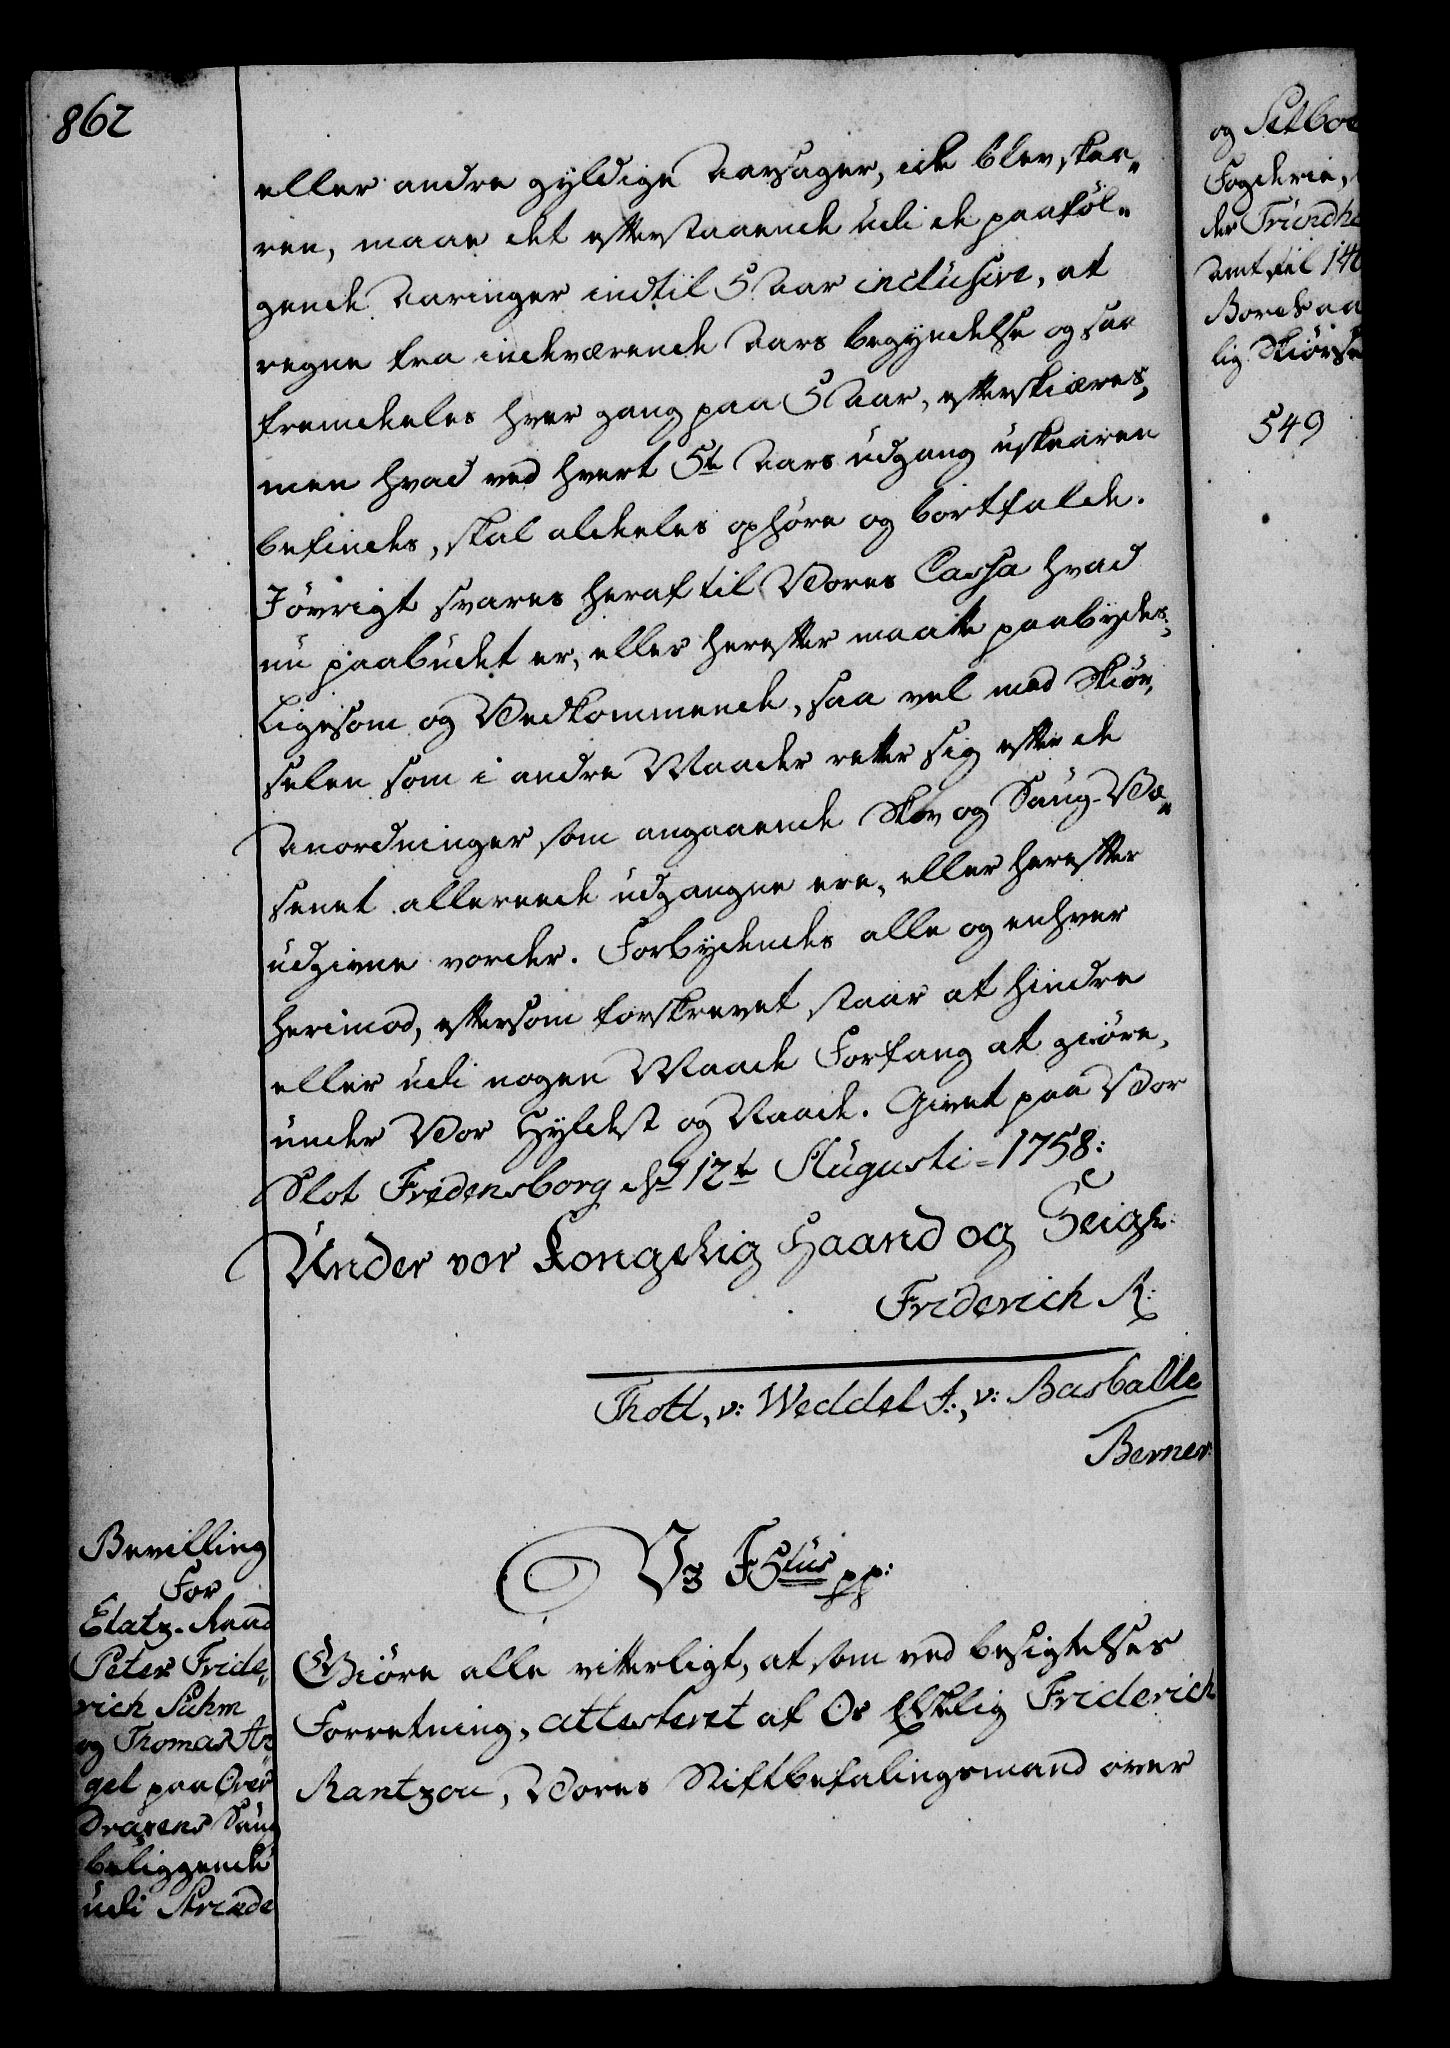 862
eller andre gyldige Aarsager, ick blev skaa„
ren, maae det efterstaaende udi de paaføl„
gende Aaringer indtil 5 Aar inclusive, at
regne fra indeværende Aars begyndelse og saa
fremdeeles hver gang paa 5 Aar, efterskiæres,
men hvad ved hvert 5te Aars udgang uskaaren
befindes, skal aldeeles ophøre og bortfalde.
I øvrigt svares heraf til Vores Cassa hvad
nu paabudet er, eller herefter maatte paabydes;
Ligesom og Vedkommende, saa vel med Skiør„
selen som i andre Maader retter sig efter de
Anordninger som angaaende Skov og Saug-Væ„
senet allereede udgangne ere, eller herefter
udgivne vorder. Forbydendes alle og enhver
herimod, eftersom forskrevet staar at hindre
eller udi nogen Maade Forfang at giøre,
under Vor Hyldest og Naade. Givet paa Vor
Slot Fridensborg d 12te Augusti 1758:
Under vor Kongelig Haand og Seigl:
Friderich R:
Thott, v: Weddel F:, v: Basballe
Berner:
Bevilling
For
Etatz-Raad
Peter Fride„
rich Suhm
og Thomas An
gel paa Over
Draxens Saug
beliggende
udi Strinde
V3 F5tus pp:
Giøre alle vitterligt, at som ved besigtelses
Forretning, attesteret af Os Elskelig Friderich
Rantzou, Vores Stiftbefalingsmand over
og Selboe
Fogderie,
der Trundh
Amt, til 140
Bords aa
lig Skiørse
549